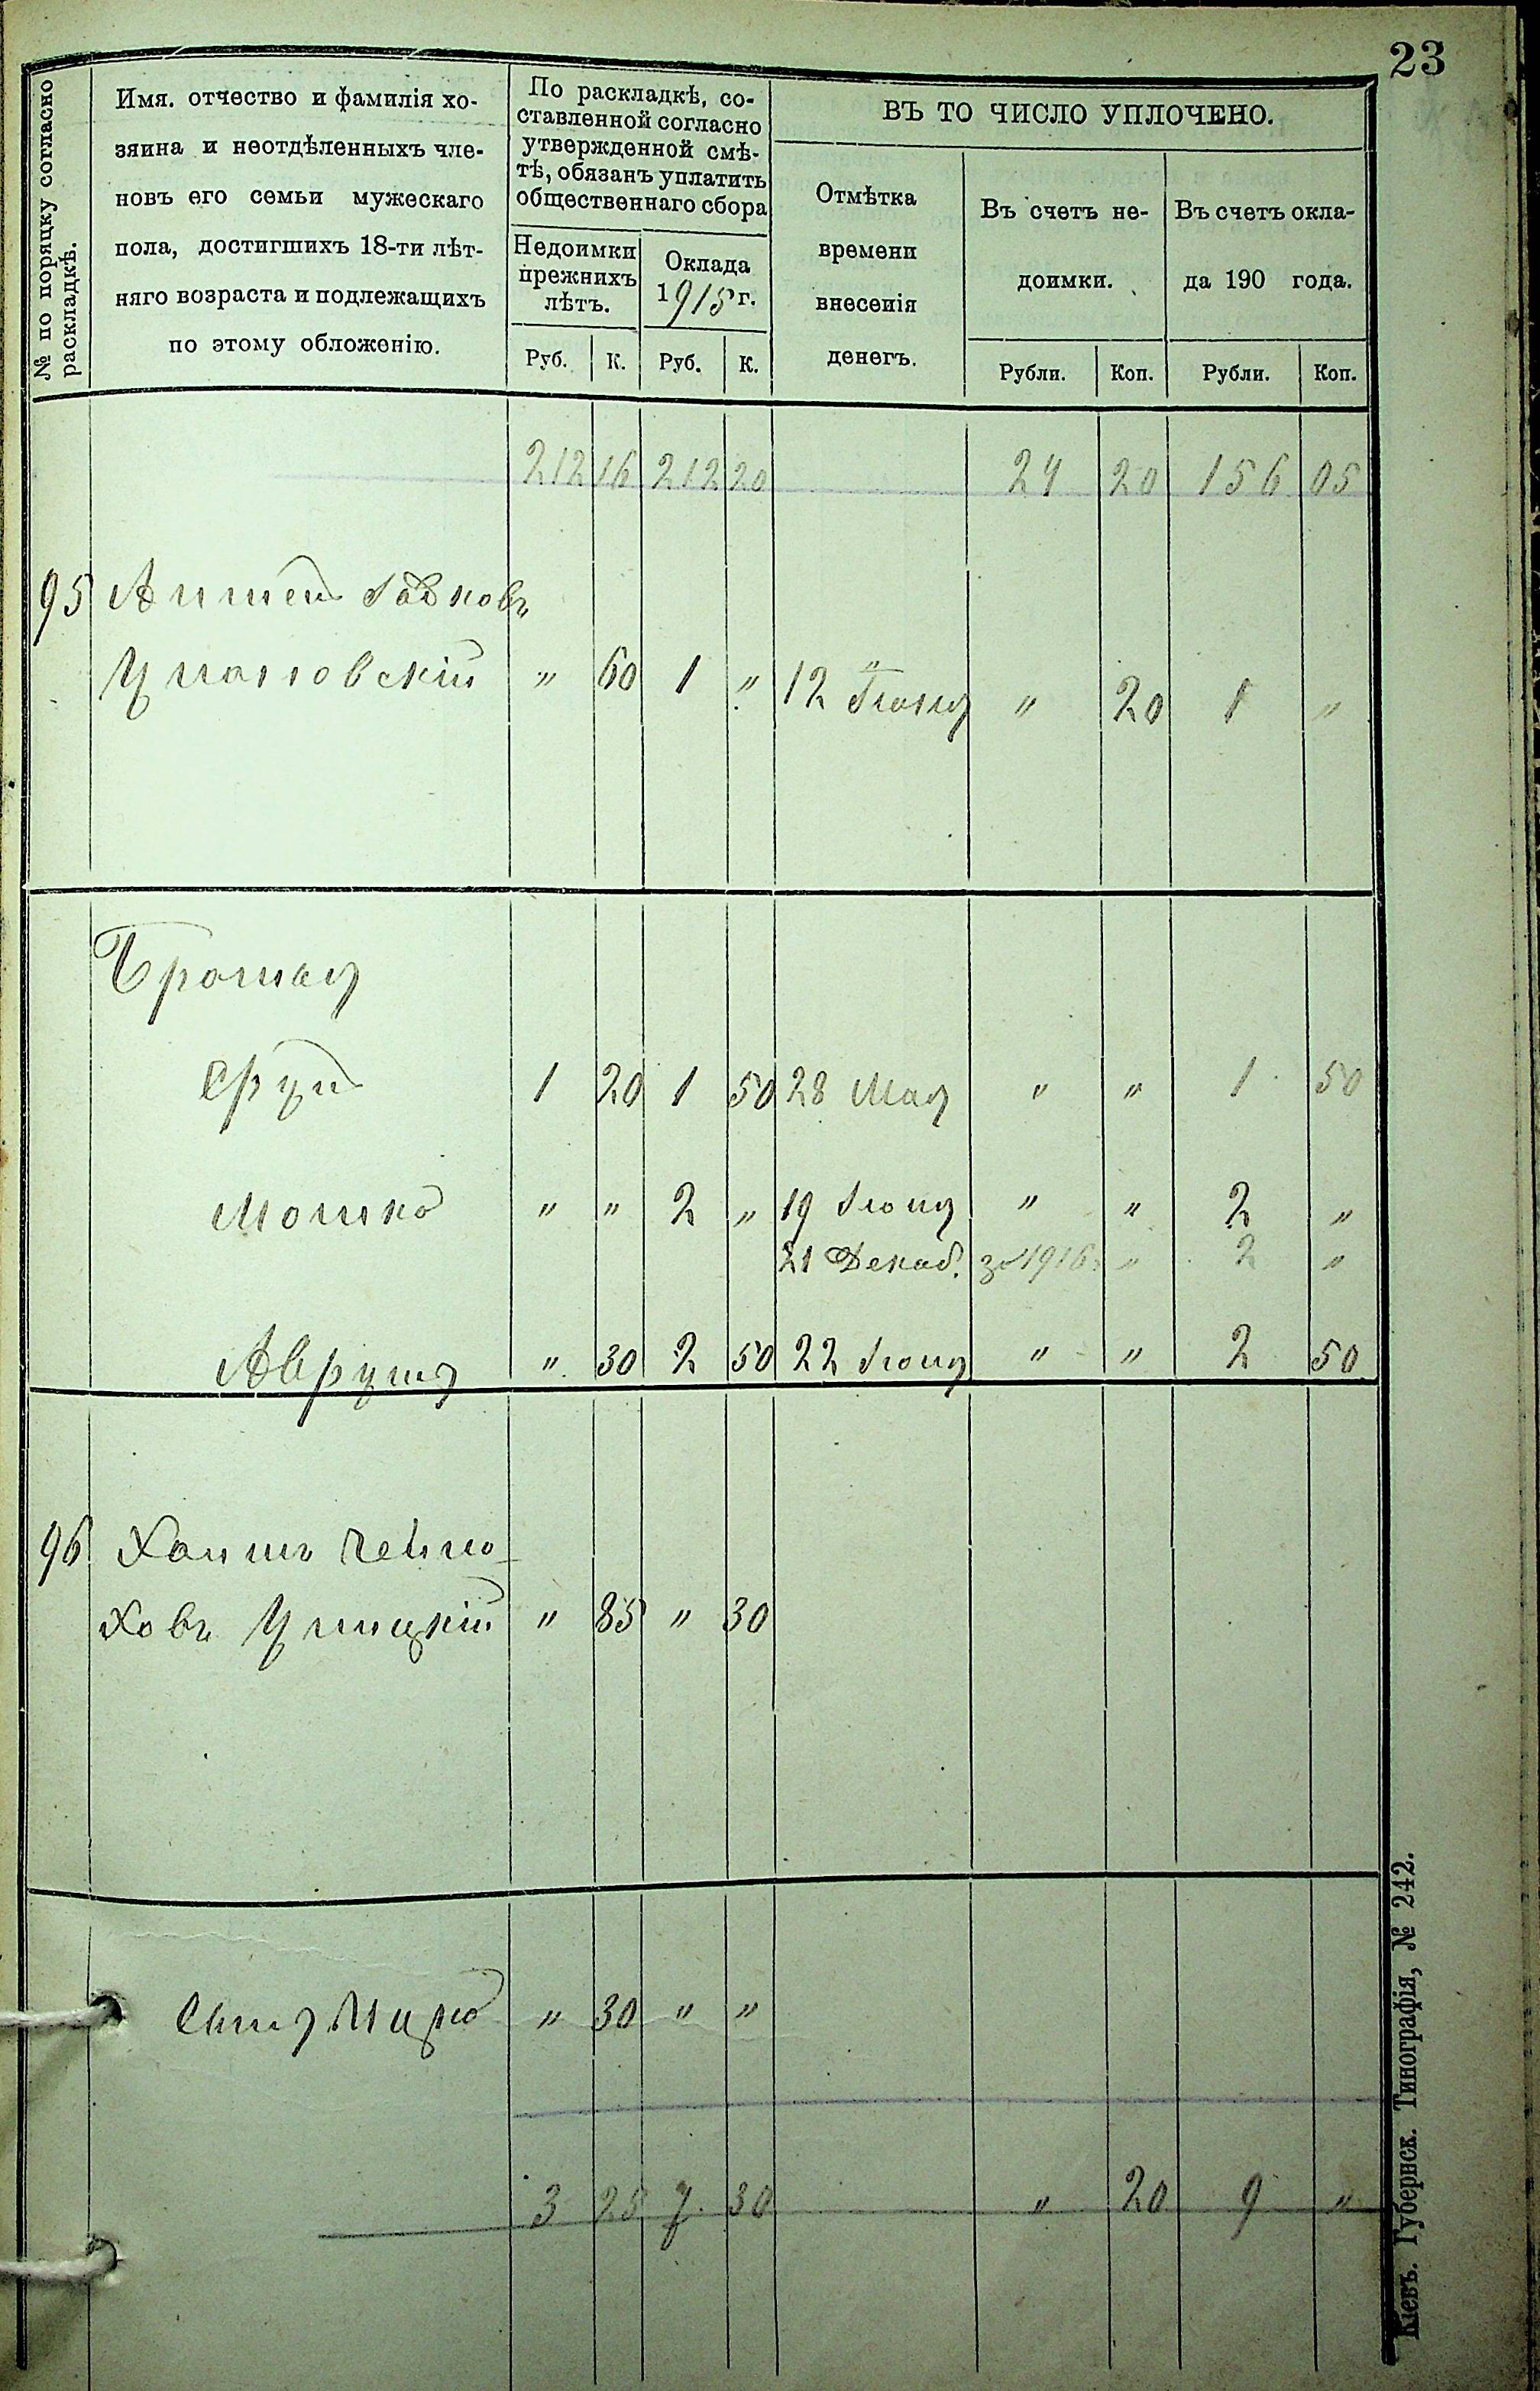 23
№ по поряцку согласно
раскладкѣ.
Имя. отчество и фамилія хо-
зяина и неотдѣленныхъ чле-
новъ его семьи мужескаго
пола, достигшихъ 18-ти лѣт-
няго возраста и подлежащихъ
по этому обложенію.
По раскладкѣ, со-
ставленной согласно
утвержденной смѣ-
тѣ, обязанъ уплатить
общественнаго сбора
Недоимки
прежнихъ
лѣтъ.
Руб. К.
Оклада
1915 г.
Руб. К.
ВЪ ТО ЧИСЛО УПЛОЧЕНО.
Отмѣтка
времени
внесенія
денегъ.
Въ счетъ не-
доимки.
Рубли. Коп.
Въ счетъ окла-
да 190 года.
Рубли. Коп.
212 16 212 20 24 20 156 05
95
" 60 1 " 12 " 20 1 "
Сруль 1 20 1 50 28 Мая " " 1 50
Мошко " " 2 " 19 Іюня " " 2 "
21 Декаб. за 1916 " 2 "
Аврумъ " 30 2 50 22 Іюня " " 2 50
96 Хаимъ
ховъ " 85 " 30
" 30 " "
3 25 7 30 " 20 9 "
Кіевъ. Губернск. Типографія, № 242.